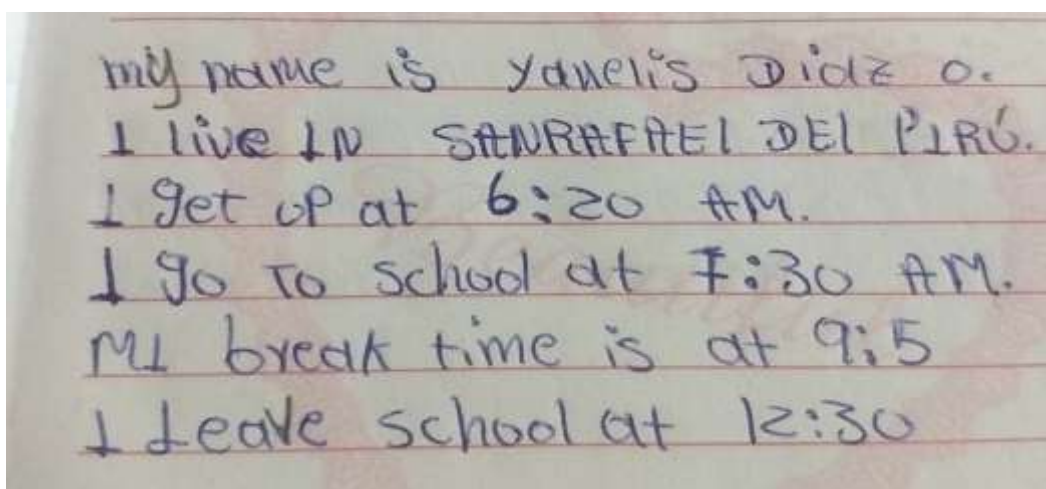 my name is Yanelis Diaz O.
I live IN SANRAFAEl DEl PIRÚ.
I get up at 6:20 AM.
I go TO school at 7:30 AM.
MI break time is at 9:5
I Leave school at 12:30